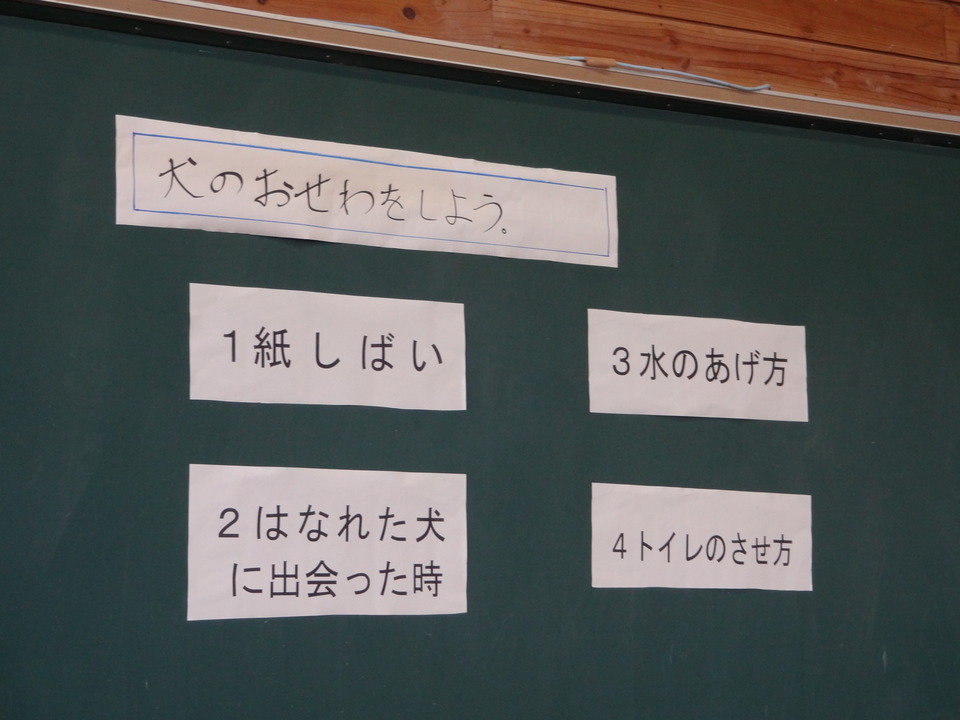 犬のおせわをしよう。
1紙しばい
2はなれた犬
に出会った時
3水のあげ方
4トイレのさせ方